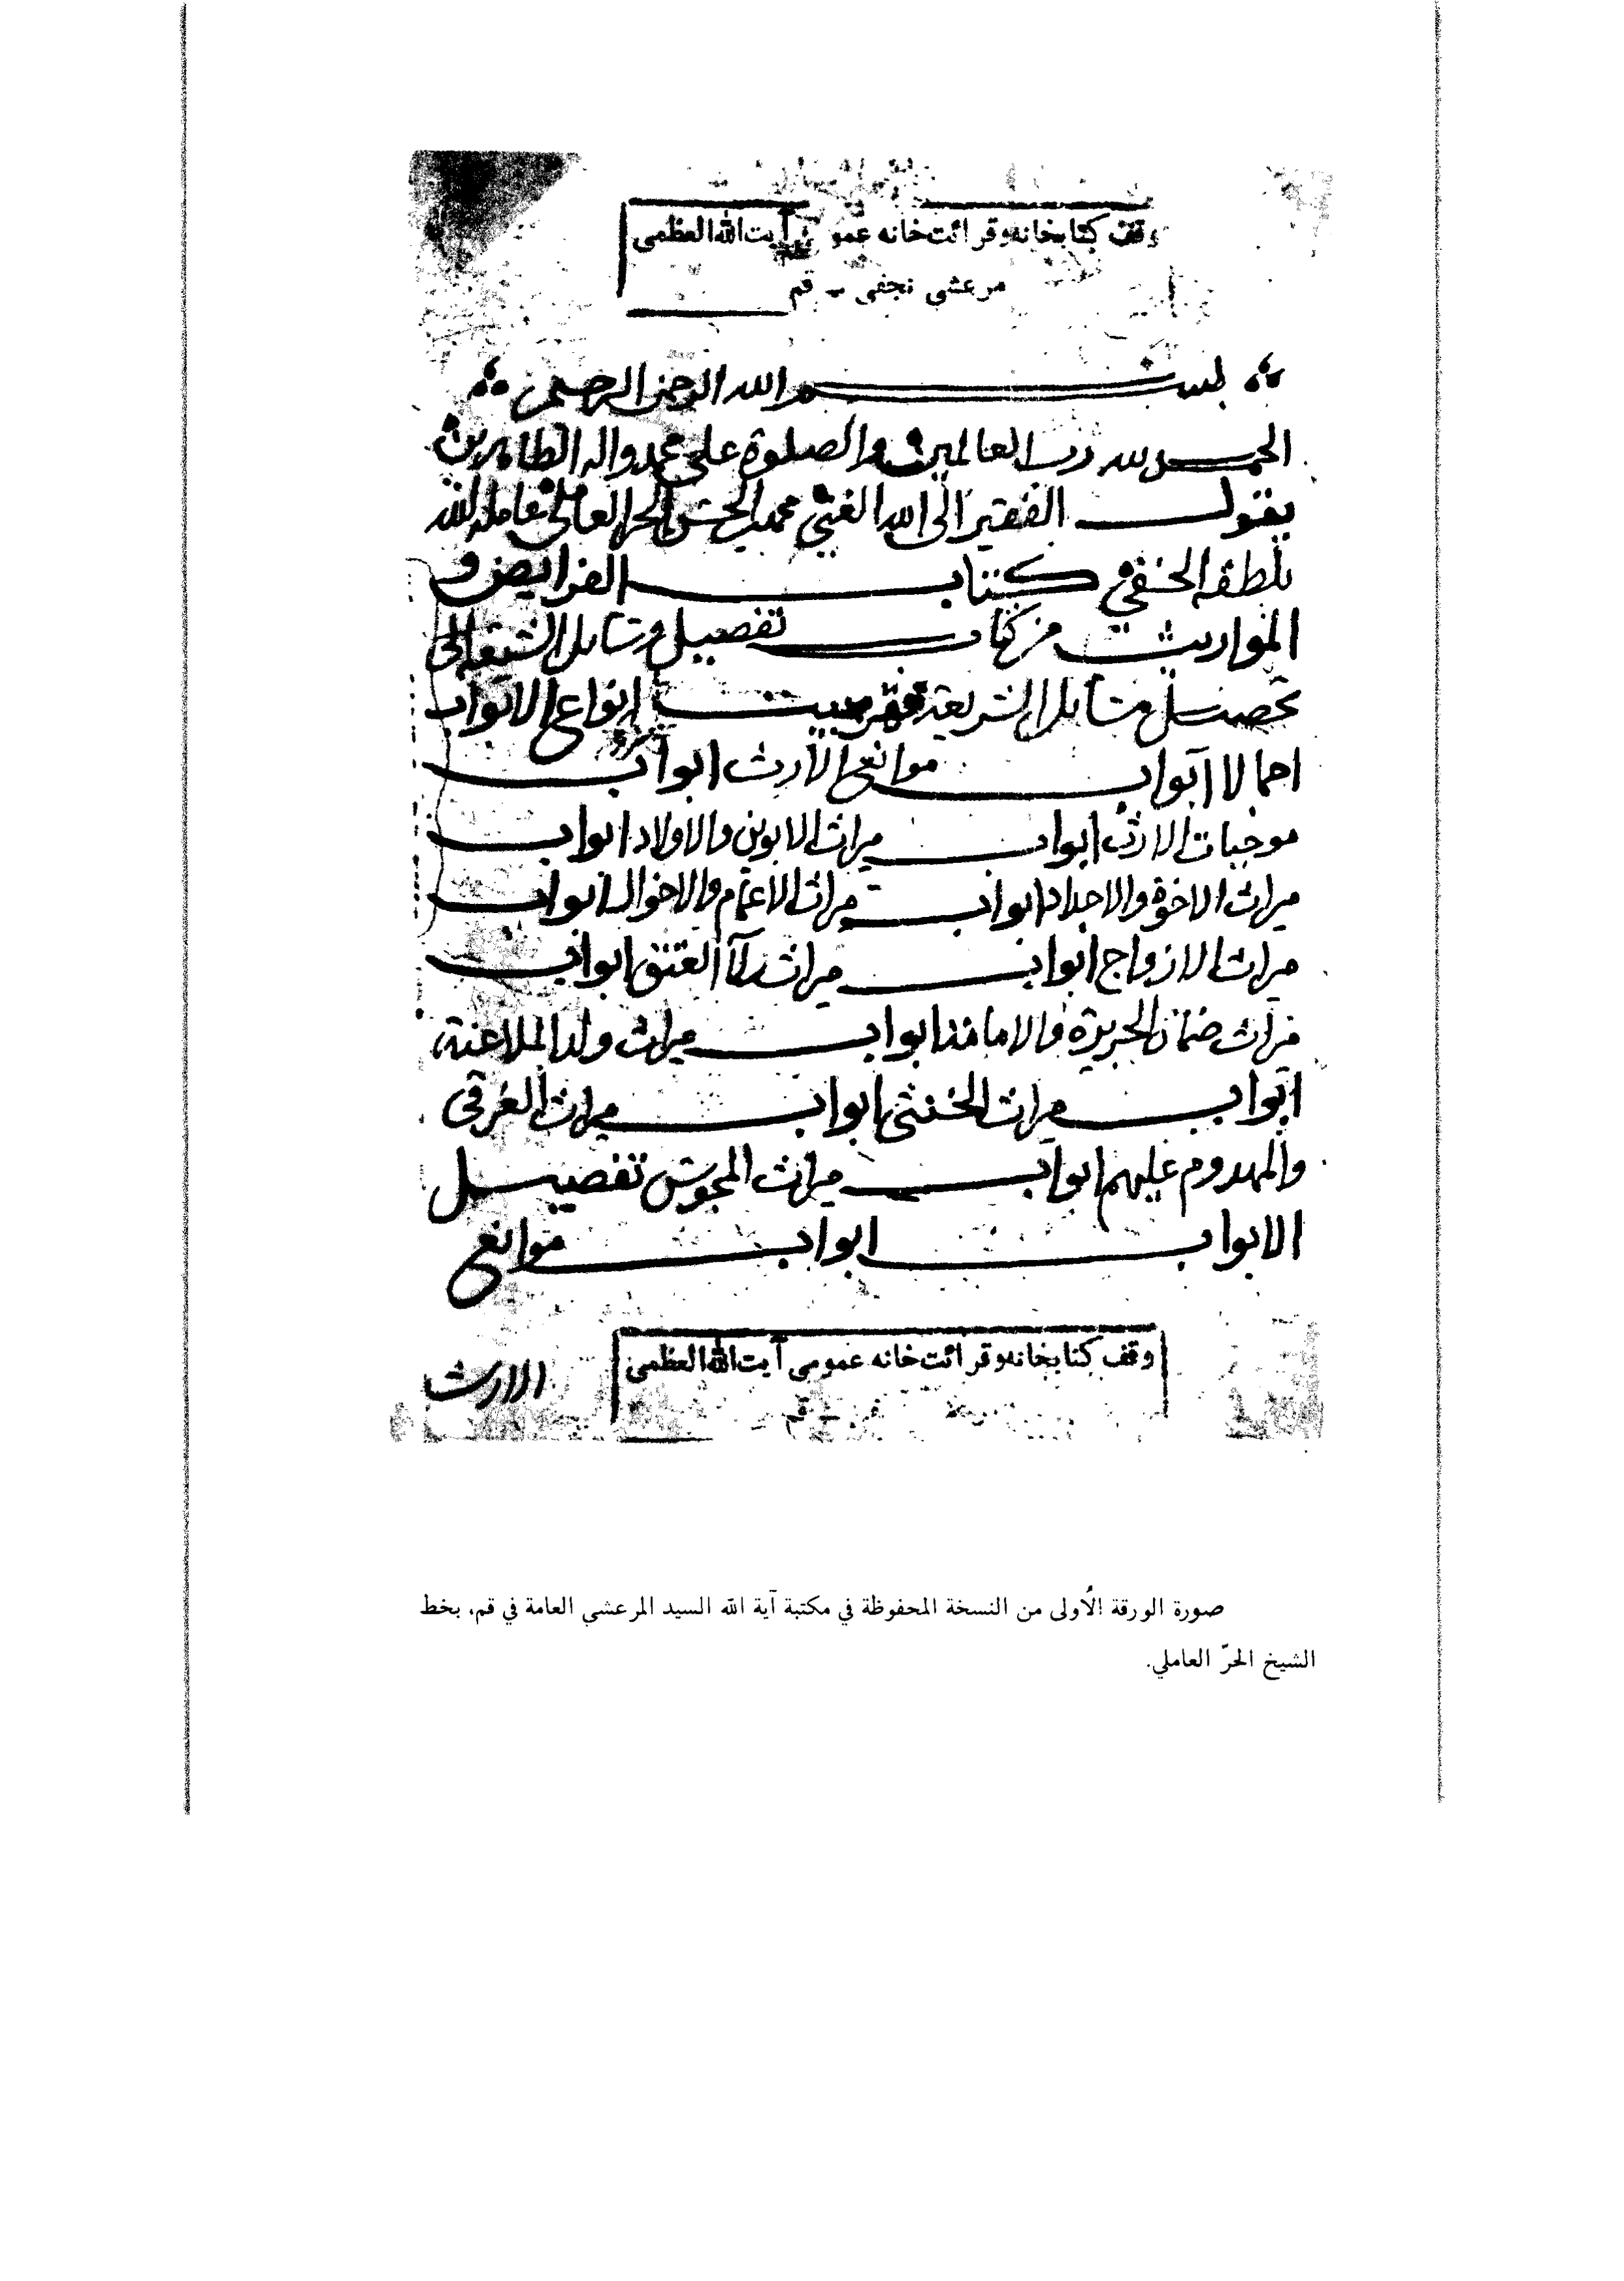 وقف كتابخانه وقرائت خانه عمو آيت الله العظمى
مرعشى نجفى - قم
بسم الله الرحمن الرحيم
الحمد لله رب العالمين والصلوة على محمد واله الطاهرين
يقول الفقير الى الله الغني محمد بن الحسن الحر العاملي عامله الله
بلطفه الخفي كتاب الفرايض و
المواريث من كتاب تفصيل وسائل الشيعة الى
تحصيل مسائل الشريعة فهرست انواع الابواب
اجمالا ابواب موانع الارث ابواب
موجبات الارث ابواب ميراث الابوين والاولاد ابواب
ميراث الاخوة والاجداد ابواب ميراث الاعمام والاخوال ابواب
ميراث الازواج ابواب ميراث ولآء العتق ابواب
ميراث ضمان الجريرة والامامة ابواب ميراث ولد الملاعنة
ابواب ميراث الخنثى ابواب ميراث الغرقى
والمهدوم عليهم ابواب ميراث المجوس تفصيل
الابواب ابواب موانع
الارث
وقف كتابخانه وقرائت خانه عمومى آيت الله العظمى
- قم
صورة الورقة الأولى من النسخة المحفوظة في مكتبة آية الله السيد المرعشي العامة في قم، بخط
الشيخ الحرّ العاملي.